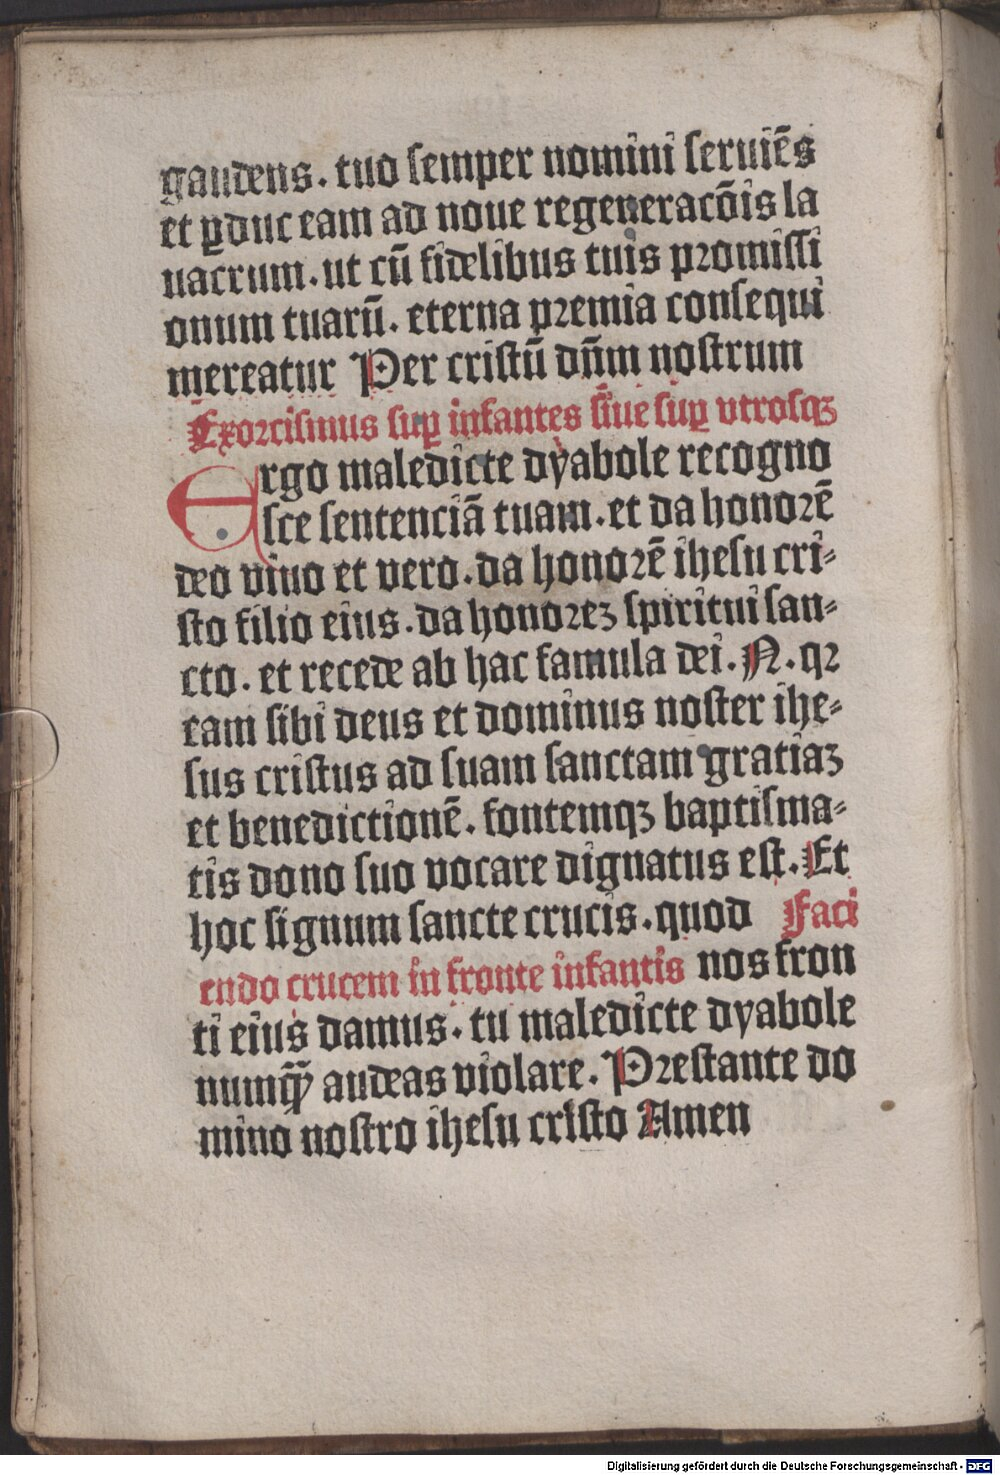 gaudens. tuo semper nomini seruiēs
et ꝑduc eam ad noue regeneracōis la
uacrum. ut cū fidelibus tuis promissi
onum tuarū. eterna premia consequi
mereatur Per cristū dn̄m nostrum
Exorcismus suꝑ infantes siue suꝑ vtrosqꝫ
Ergo maledicte dyabole recogno
sce sentenciā tuam. et da honorē
deo viuo et vero. da honorē ihesu cri⸗
sto filio eius. da honoreꝫ spiritui san⸗
cto. et recede ab hac famula dei. N. qꝛ
eam sibi deus et dominus noster ihe⸗
sus cristus ad suam sanctam gratiaꝫ
et benedictionē. fontemqꝫ baptisma⸗
tis dono suo vocare dignatus est. Et
hoc signum sancte crucis. quod Faci
endo crucem in fronte infantis nos fron
ti eius damus. tu maledicte dyabole
numꝙ̄ audeas violare. Prestante do
mino nostro ihesu cristo Amen
Digitalisierung gefördert durch die Deutsche Forschungsgemeinschaft - DFG